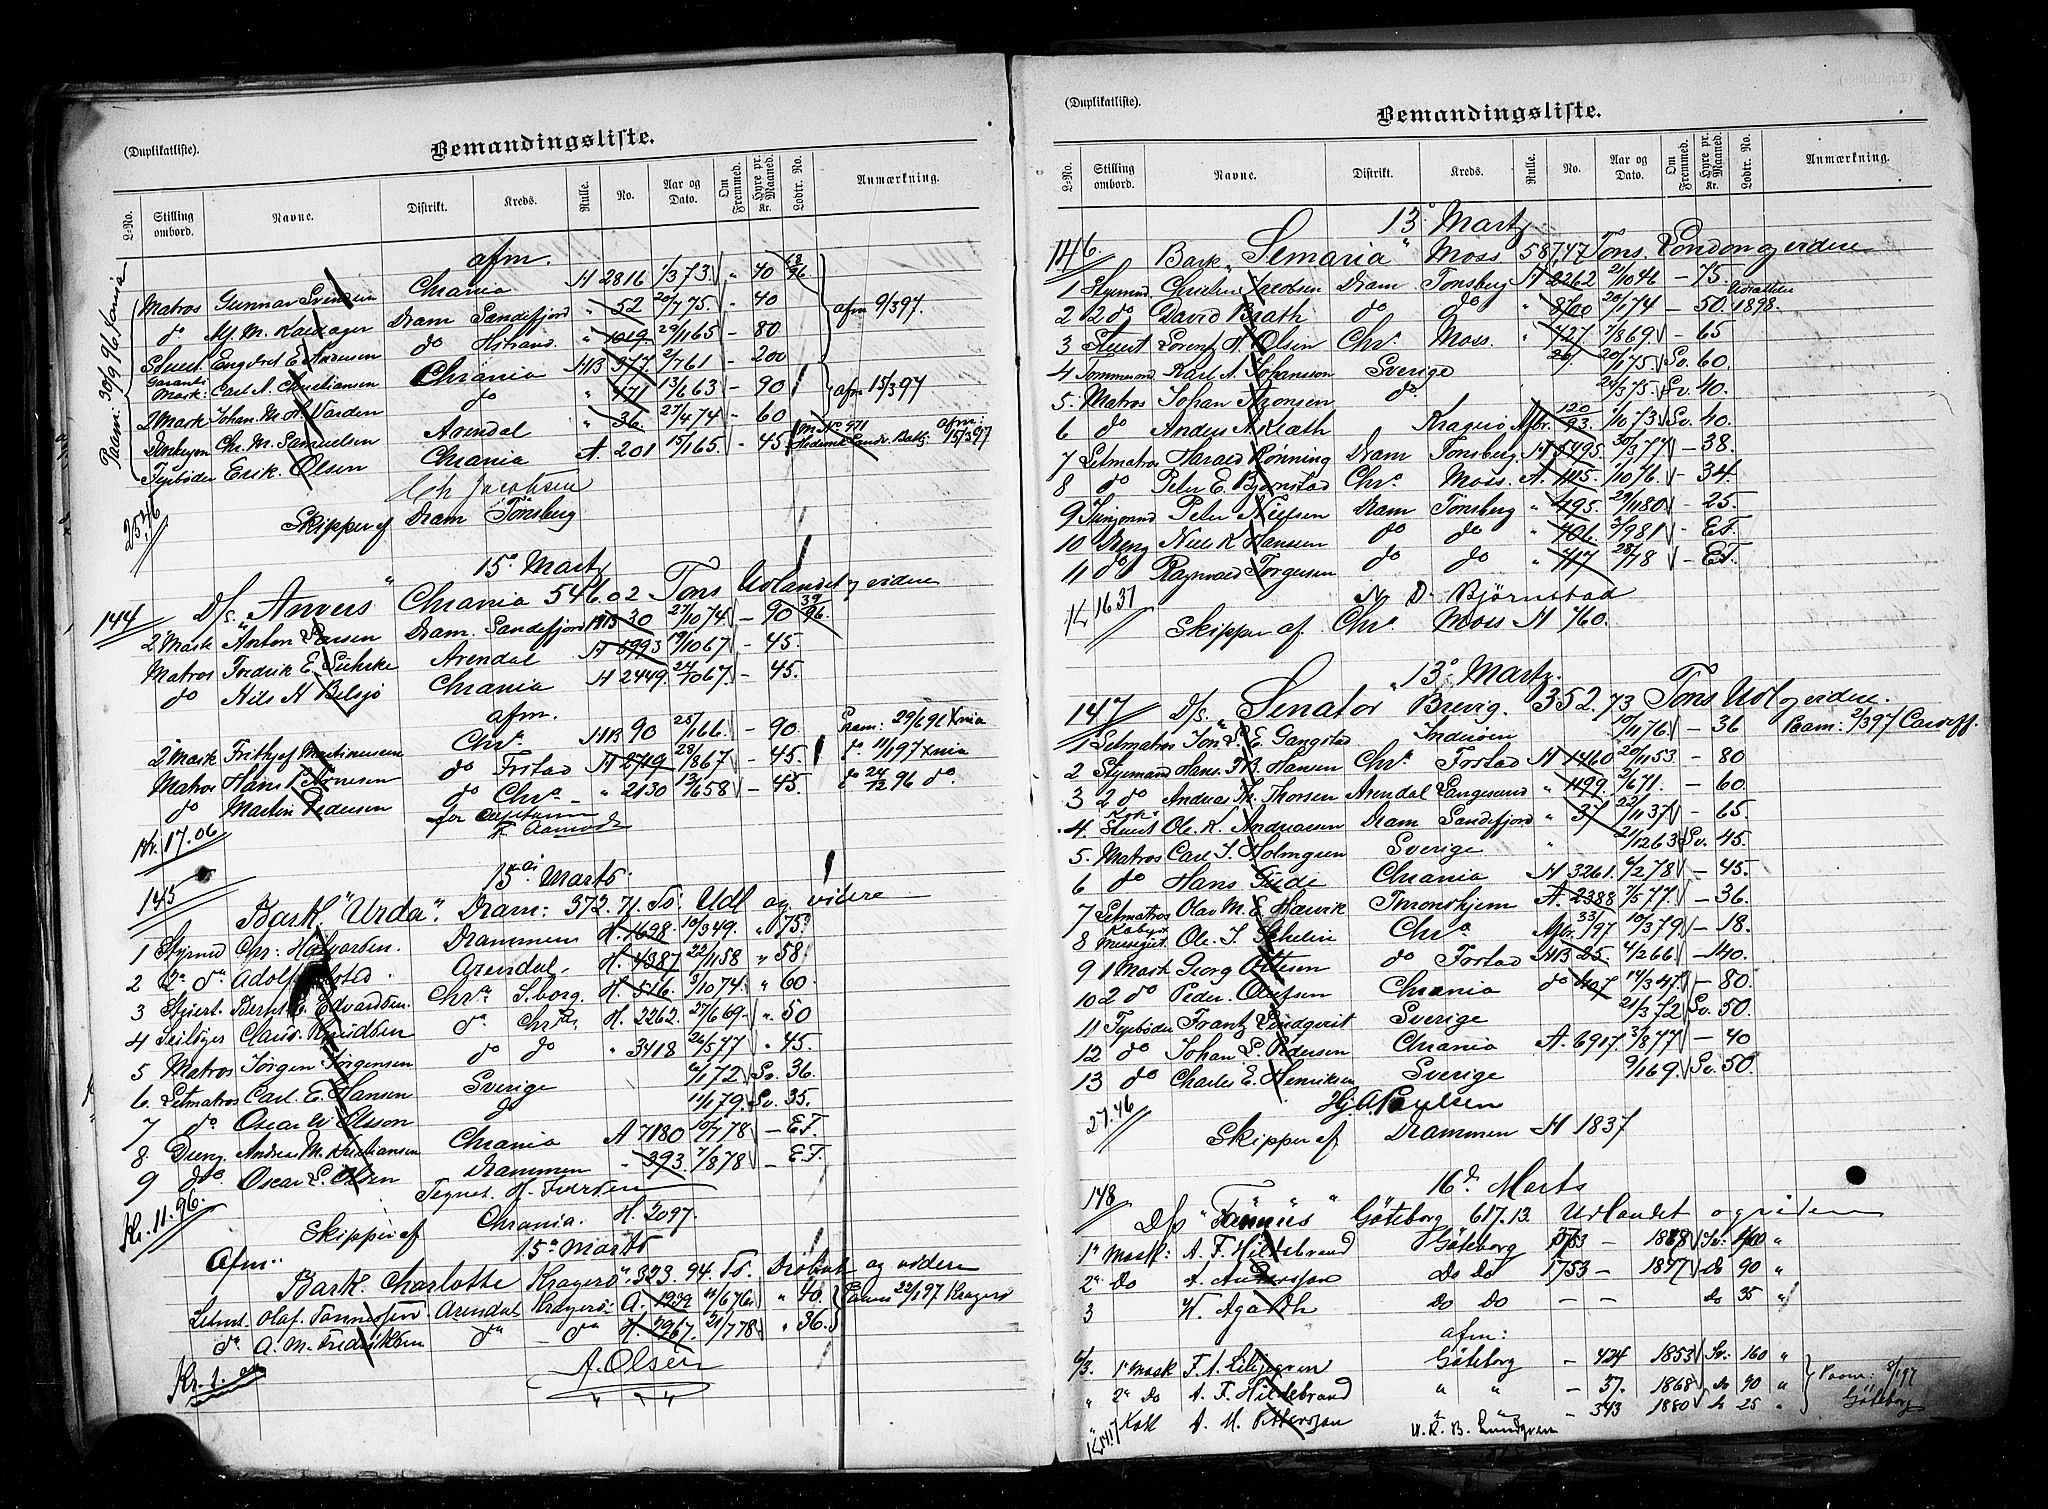 (Duplikatliste).
Bemandingsliste.
L-No. Stilling ombord. Navne. Distrikt. Kreds. Rulle. No. Aar og Dato. Om Fremmed. Hyre pr. Maaned. Kr. Lodtr. No. Anmærkning.
afm.
Matros Gunnar Svensen Chrania H 2816 1/3 73 " 40
do M. M. Kaldager Dram Sandefjord " 52 20/7 75 - 40 afm 9/3 97.
Stuert Engebret E. Andresen do Hstrand " 1019 29/11 65 - 80
Garanti Mask: Carl A. Christiansen Chrania MB 377 2/7 61 - 200
2 Mask Johan M. H. Varden do " 471 13/1 63 - 90 afm 15/3 97
Donkeym Chr. M. Samuelsen Arendal " 36 27/4 74 - 60
Fyrbøder Erik Olsen Chrania A 201 15/1 65 - 45 afm. 15/3 97
Paam: 30/9 96 Xania
Chr Jacobsen
Skipper af Dram Tönsberg
25.46
15de Martz
144 D/s. "Anvers" Chrania 546.02 Tons Udlandet og videre
2 Mask Anton Larsen Dram. Sandefjord MB 30 27/10 74 - 90 39/96.
Matros Fredrik E. Luhrke Arendal A 5993 19/10 67 - 45.
do Nils H Belsjö Chrania H 2449 24/7 067 - 45.
afm.
2 Mask Frithjof Martinussen Chra MB 90 25/1 66 - 90 Paam: 29/6 96 Xnia
Matros Hans P. Arnesen do Frstad H 2719 28/8 67 - 45. do 11/1 97 Xania
do Martin Pedersen do Chra - " 2130 13/6 58 - 45. do 24/12 96 do.
for Capitainen
F. Aamodt
Kr. 17.06
15de Marts
145 Bark "Urda". Dram: 372.71. To. Udl og videre
1 Styrmd Chr: Halvorsen. Drammen H. 1698 10/3 49. " 75
2 2de do Adolf Arendal. H. 4387 22/11 58 " 58
3 Stuert. Bernt E. Edvardsen. Chra S.borg. H. 516. 3/10 74 " 60.
4 Seilsyer Claus Knudsen do Chra. H. 2262. 27/6 69 " 50
5 Matros Jørgen Jørgensen do do " 3418 26/5 77 " 45.
6. Letmatros Carl. E. Hansen Sverige 6/1 72 Sv. 36.
7 do Oscar W Olsson do 11/1 79. Sv. 35.
8 Dreng. Andreas M. Kristiansen Chrania A 7180 10/7 78 - EF.
9 do Oscar L. Olsen Drammen - 393. 7/8 78 - EF.
Kr. 11.96.
Tegnet. H. Iversen
Skipper af Chrania. H. 2097.
15de Marts
Afm: Bark Charlotte Kragerö. 323.94. To. Dröbak og videre
Letmt. Olaf. Tønnessen Arendal Kragerö: A. 1939 11/6 76 " 40. Paam 22/1 97 Kragerö
do A. M. Fredriksen do - do H. 2967. 21/7 78 " 36.
A. Olsen
Kr. 1.
(Duplikatliste).
Bemandingsliste.
L-No. Stilling ombord. Navne. Distrikt. Kreds. Rulle. No. Aar og Dato. Om Fremmed. Hyre pr. Maaned. Kr. Lodtr. No. Anmærkning.
13de Martz
146. Bark "Semaria" Moss 587,47 Tons. London og videre
1 Styrmnd Christian Jacobsen Dram Tonsberg H 2262 21/10 46 - 75.
2 2 do David Brath do do " 800 20/1 74 - 50 1898.
3 Stuert Lorentz H. Olsen Chra Moss. " 727. 7/8 69 - 65
4 Tømmermd Karl A. Johansson Sverige 20/1 75 Sv. 60.
5. Matros Johan Aronsen do. 24/3 75. Sv. 40.
6 do Anders A. Krath Kragerö Afbr. 120/93. 1/10 73 Sv. 40.
7 Letmatros Harald Rönning Dram Tonsberg. H 5495. 30/3 77 - 38.
8 do Peter E. Bjørnstad Chra Moss. A. 1115. 7/10 76. - 34.
9 Jungmnd Peter Nielsen Dram Tonsberg " 495. 29/11 80 - 25.
10 Dreng Niels K Hansen do do " 706. 3/9 81 - EF.
11 do Ragnvald Torgersen do do " 717 28/ 78 - EF.
K 16.37
N. D. Bjørnstad
Skipper af Chra Moss H 760.
13de Martz.
147 D/s. "Senator" Brevig. 352.73 Tons Udl og videre.
1 Letmatros Ion P. E. Gangstad Inderøen 10/11 76 - 36 Paam: 2/3 97 Cardiff
2 Styrmand Hans. F. B. Hansen Chra Frstad H 1460 20/11 53 - 80
3 2 do Andreas Th. Thorsen Arendal Langesund " 1199. 2/6 71. - 60.
4. Kok & Stuert Ole. K. Andreasen Dram Sandefjord " 37 22/11 37 - 65.
5. Matros Carl J. Holmgren Sverige " 21/12 63 Sv. 45.
6 do Hans Gude Chrania H 3261. 6/2 78 - 45.
7 Letmatros Olav M. E. Hauvik Throndhjem A. 2388 7/5 77 - 36.
8 Ole. J. Schelin Chra Afbr. 33/97 10/3 79 - 18.
9 1 Mask Georg Ottesen do Frstad MB 25. 4/2 66. - 140.
10 2 do Peder. Olufsen Chrania do 407 14/3 47. - 80.
11 Fyrbøder Frantz Lindqvist Sverige 21/3 72 Sv. 50.
12 do Johan L. Pedersen Chrania A. 6917. 3/8 77 - 40
13 do Charles E. Henriksen Sverige 9/1 69. Sv. 50.
27.46
Hj. A Poulsen
Skipper af Drammen H 1837
16de Marts
148 D/s "Tärnus" Göteborg 617.13. Udlandet og viden
1e Mask: A. F. Hildebrand Göteborg 1753 - 1868 Sv:
2e Do A. Andersson Do Do 1753 - 1847 Do 90 "
3 W. Agardh Do Do - - Do 35 "
afm:
6/3. 1e Mask F. A. Liljegren Göteborg - 424 1853 Sv: 160 "
" 2e Do A. F. Hildebrand " " - 37. 1868 Do 90 " Paam: 8/1 97
" Kok A. M. Pettersson " " - 343 1880 Do 25 " Göteborg
K 14.17
U. R. B. Lundgren